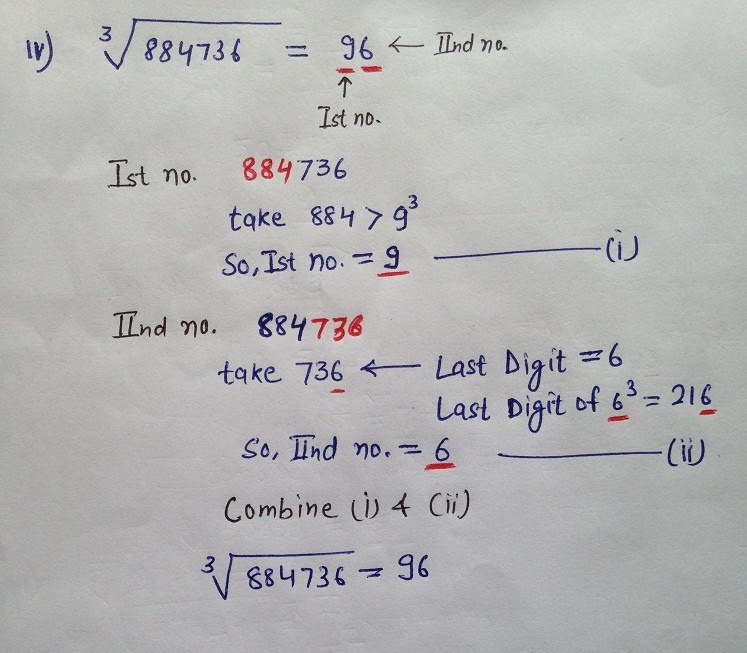 iv) ∛884736 = 96 ← IInd no.
↑
Ist no.
Ist no. 884736
take 884 > 9³
So, Ist no. = 9 ——— (i)
IInd no. 884736
take 736 ← Last Digit = 6
Last Digit of 6³ = 216
So, IInd no. = 6 ——— (ii)
Combine (i) & (ii)
∛884736 = 96